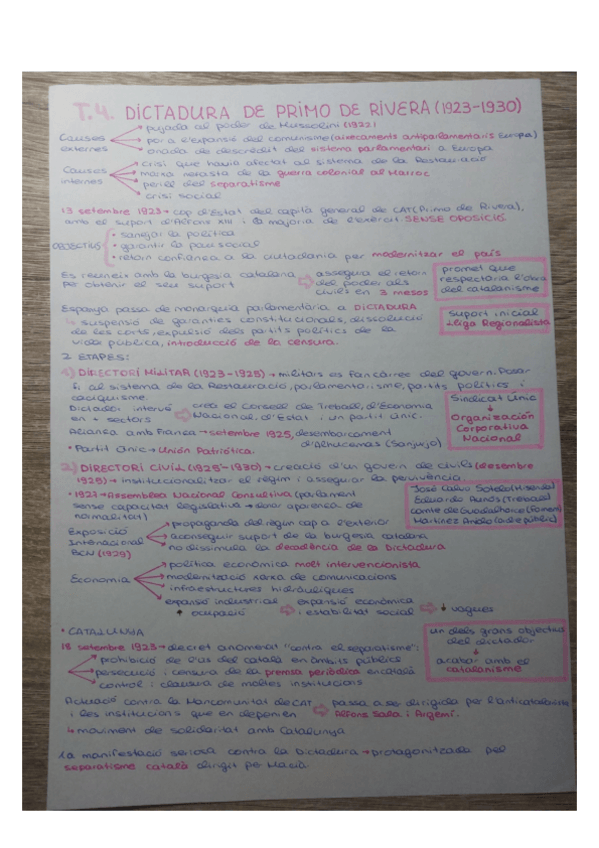 T.4. DICTADURA DE PRIMO DE RIVERA (1923-1930)
Causes externes
pujada al poder de Mussolini (1922)
por a l'expansió del comunisme (aixecaments antiparlamentaris Europa)
onada de descrèdit del sistema parlamentari a Europa
Causes internes
crisi que havia afectat al sistema de la Restauració
marxa nefasta de la guerra colonial al Marroc
perill del separatisme
crisi social
13 setembre 1923 → cop d'Estat del capità general de CAT (Primo de Rivera),
amb el suport d'Alfons XIII i la majoria de l'exèrcit. SENSE OPOSICIÓ
OBJECTIUS
• sanejar la política
• garantir la pau social
• retorn confiança a la ciutadania per modernitzar el país
Es reuneix amb la burgesia catalana
per obtenir el seu suport
assegura el retorn
del poder als
civils en 3 mesos
promet que
respectaria l'obra
del catalanisme
Espanya passa de monarquia parlamentària a DICTADURA
↳ suspensió de garanties constitucionals, dissolució
de les corts, expulsió dels partits polítics de la
vida pública, introducció de la censura.
suport inicial
Lliga Regionalista
2 ETAPES:
1) DIRECTORI MILITAR (1923-1925) → militars es fan càrrec del govern. Posar
fi al sistema de la Restauració, parlamentarisme, partits polítics i
caciquisme.
Dictador intervé
en + sectors
crea el Consell de Treball, d'Economia
Nacional, d'Estat i un partit únic.
Sindicat Únic
↓
Organización
Corporativa
Nacional
Aliança amb França → setembre 1925, desembarcament
d'Alhucemas (Sanjurjo)
• Partit únic → Unión Patriótica.
2) DIRECTORI CIVIL (1925-1930) → creació d'un govern de civils (desembre
1925) → institucionalitzar el règim i assegurar la pervivència.
• 1927 → Assemblea Nacional Consultiva (parlament
sense capacitat legislativa → donar aparença de
normalitat)
José Calvo Sotelo (Hisenda)
Eduardo Aunós (Treball)
Comte de Guadalhorce (Foment)
Martínez Anido (ordre públic)
Exposició
Internacional
BCN (1929)
propaganda del règim cap a l'exterior
aconseguir suport de la burgesia catalana
no dissimula la decadència de la Dictadura
Economia
política econòmica molt intervencionista
modernització xarxa de comunicacions
infraestructures hidràuliques
expansió industrial
+ ocupació
expansió econòmica
i estabilitat social
↓ vagues
• CATALUNYA
18 setembre 1923 → decret anomenat "contra el separatisme":
prohibició de l'ús del català en àmbits públics
persecució i censura de la premsa periòdica en català
control i clausura de moltes institucions
un dels grans objectius
del dictador
↓
acabar amb el
catalanisme
Actuació contra la Mancomunitat de CAT
i les institucions que en depenien
passa a ser dirigida per l'anticatalanista
Alfons Sala i Argemí.
↳ moviment de solidaritat amb Catalunya
1a manifestació seriosa contra la Dictadura → protagonitzada pel
separatisme català dirigit per Macià.